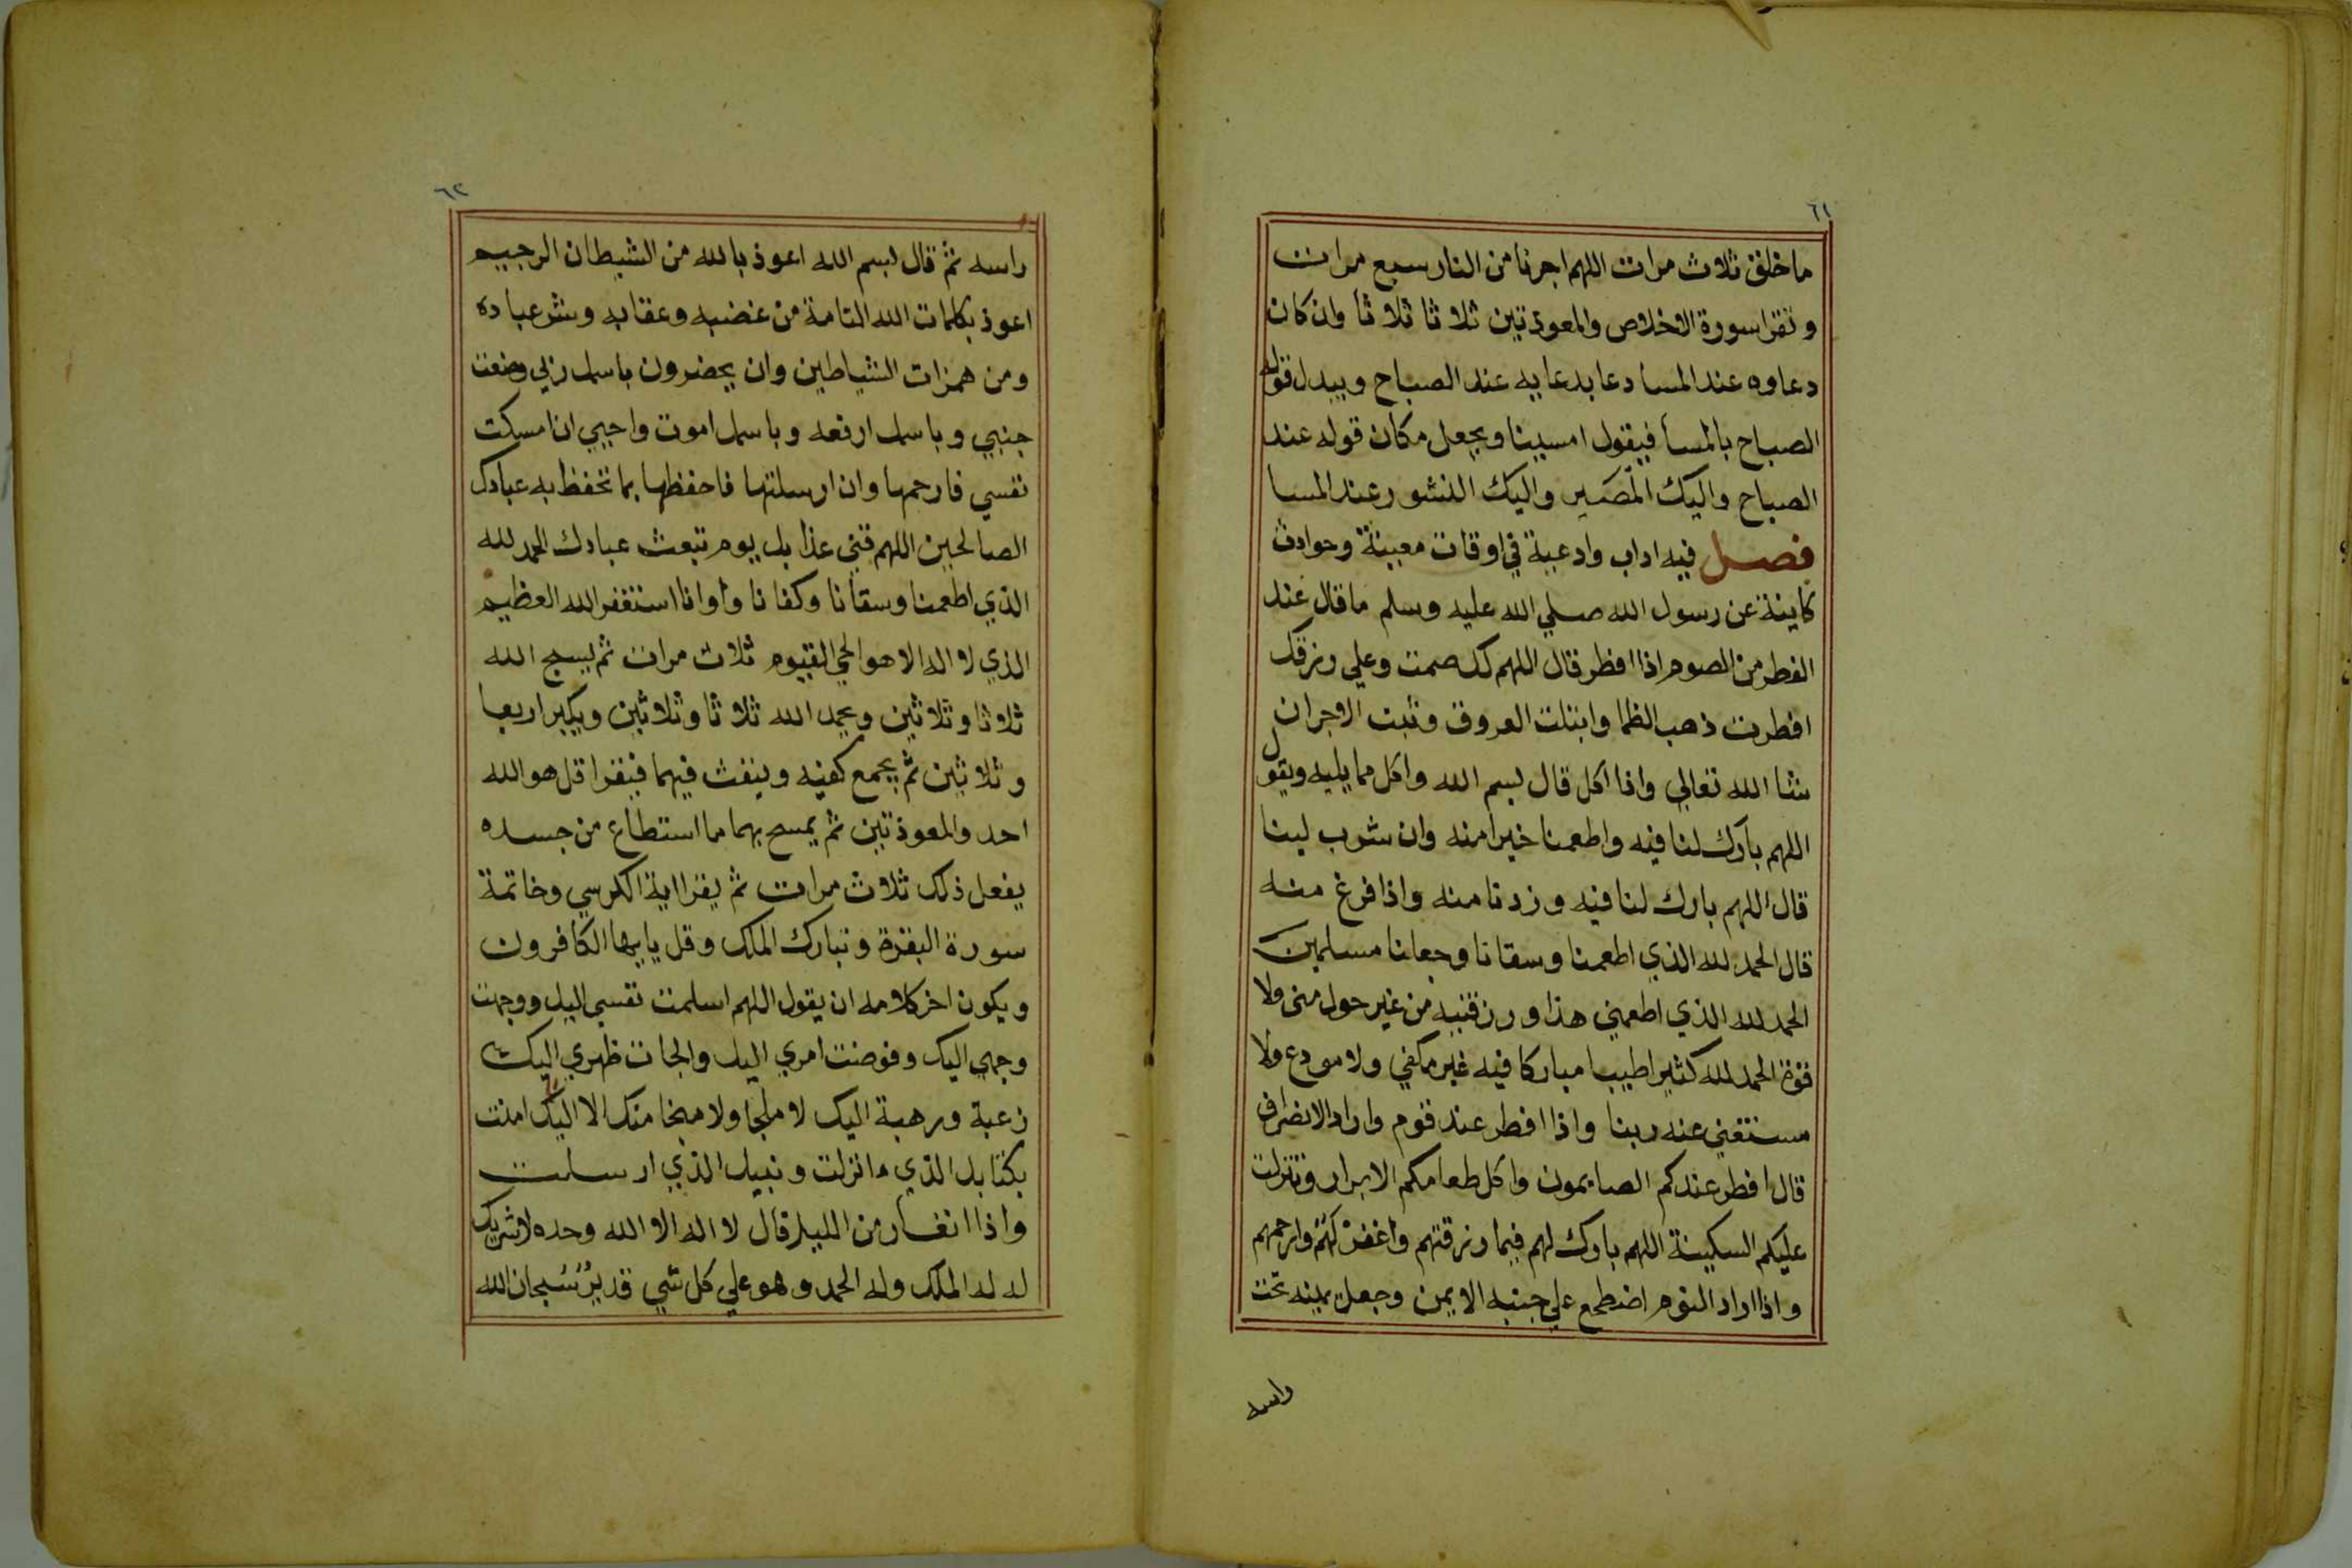 ٦١
ما خلق ثلاث مرات اللهم اجرنا من النار سبع مرات
وتقرا سورة الاخلاص والمعوذتين ثلاثا ثلاثا وان كان
دعاوه عند المسا دعا بدعايه عند الصباح ويبدل قوله
الصباح بالمسا فيقول امسينا ويجعل مكان قوله عند
الصباح واليك المصير واليك النشور عند المسا
فصل فيه اداب وادعية في اوقات معينة وحوادث
كاينة عن رسول الله صلي الله عليه وسلم ما قال عند
الفطر من الصوم اذا افطر قال اللهم لك صمت وعلي رزقك
افطرت ذهب الظما وابتلت العروق وثبت الاجر ان
شا الله تعالي واذا اكل قال بسم الله واكل مما يليه ويقول
اللهم بارك لنا فيه واطعمنا خيرا منه وان شرب لبنا
قال اللهم بارك لنا فيه وزدنا منه واذا فرغ منه
قال الحمد لله الذي اطعمنا وسقانا وجعلنا مسلمين
الحمد لله الذي اطعمني هذا ورزقنيه من غير حول مني ولا
قوة الحمد لله كثيرا طيبا مباركا فيه غير مكفي ولا مودع ولا
مستغني عنه ربنا واذا افطر عند قوم واراد الانصراف
قال افطر عندكم الصايمون واكل طعامكم الابرار وتنزلت
عليكم السكينة اللهم بارك لهم فيما رزقتهم واغفر لهم وارحمهم
واذا اراد النوم اضطجع علي جنبه الايمن وجعل يمينه تحت
راسه
٦٢
راسه ثم قال بسم الله اعوذ بالله من الشيطان الرجيم
اعوذ بكلمات الله التامة من غضبه وعقابه وشر عباده
ومن همزات الشياطين وان يحضرون باسمك ربي وضعت
جنبي وباسمك ارفعه وباسمك اموت واحيي ان امسكت
نفسي فارحمها وان ارسلتها فاحفظها بما تحفظ به عبادك
الصالحين اللهم قني عذابك يوم تبعث عبادك الحمد لله
الذي اطعمنا وسقانا وكفانا واوانا استغفر الله العظيم
الذي لا اله الا هو الحي القيوم ثلاث مرات ثم يسبح الله
ثلاثا وثلاثين ويحمد الله ثلاثا وثلاثين ويكبر اربعا
وثلاثين ثم يجمع كفيه وينفث فيهما فيقرا قل هو الله
احد والمعوذتين ثم يمسح بهما ما استطاع من جسده
يفعل ذلك ثلاث مرات ثم يقرا اية الكرسي وخاتمة
سورة البقرة وتبارك الملك وقل يايها الكافرون
ويكون اخر كلامه ان يقول اللهم اسلمت نفسي اليك ووجهت
وجهي اليك وفوضت امري اليك والجات ظهري اليك
رغبة ورهبة اليك لا ملجا ولا منجا منك الا اليك امنت
بكتابك الذي انزلت ونبيك الذي ارسلت
واذا انغار من الليل قال لا اله الا الله وحده لا شريك
له له الملك وله الحمد وهو علي كل شي قدير سبحان الله